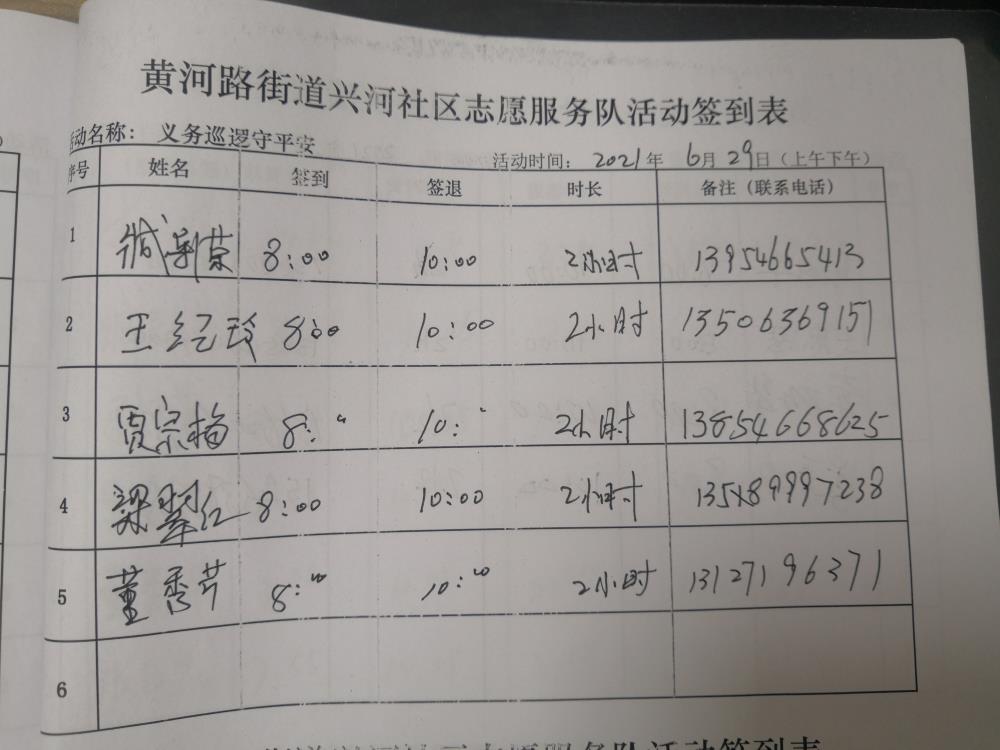 黄河路街道兴河社区志愿服务队活动签到表
活动名称： 义务巡逻守平安 活动时间： 2021年 6月 29日（上午下午）
序号 姓名 签到 签退 时长 备注（联系电话）
1 荣 8:00 10:00 2小时 13954665413
2 王红玲 8:00 10:00 2小时 13506369151
3 贾宗梅 8:" 10:" 2小时 13854668625
4 梁翠红 8:00 10:00 2小时 13589997238
5 董秀芹 8:" 10:" 2小时 13127196371
6
兴河社区志愿服务队活动签到表